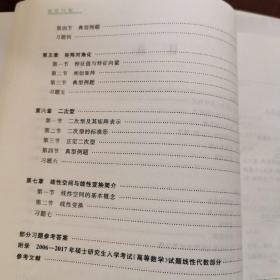 第四节 典型例题
习题四
第五章 矩阵对角化
第一节 特征值与特征向量
第二节 相似矩阵
第三节 典型例题
习题五
第六章 二次型
第一节 二次型及其矩阵表示
第二节 二次型的标准形
第三节 正定二次型
第四节 典型例题
习题六
第七章 线性空间与线性变换简介
第一节 线性空间的基本概念
第二节 线性变换
习题七
部分习题参考答案
附录 2006—2017年硕士研究生入学考试《高等数学》试题线性代数部分
参考文献